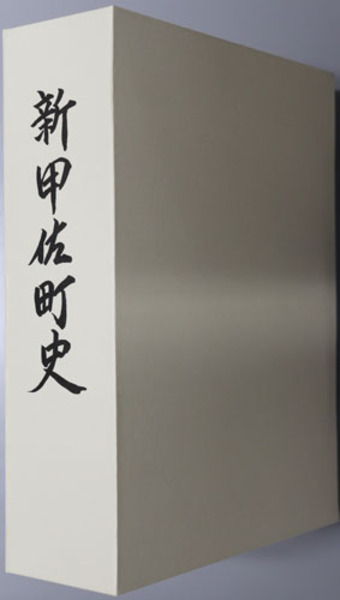 新甲佐町史